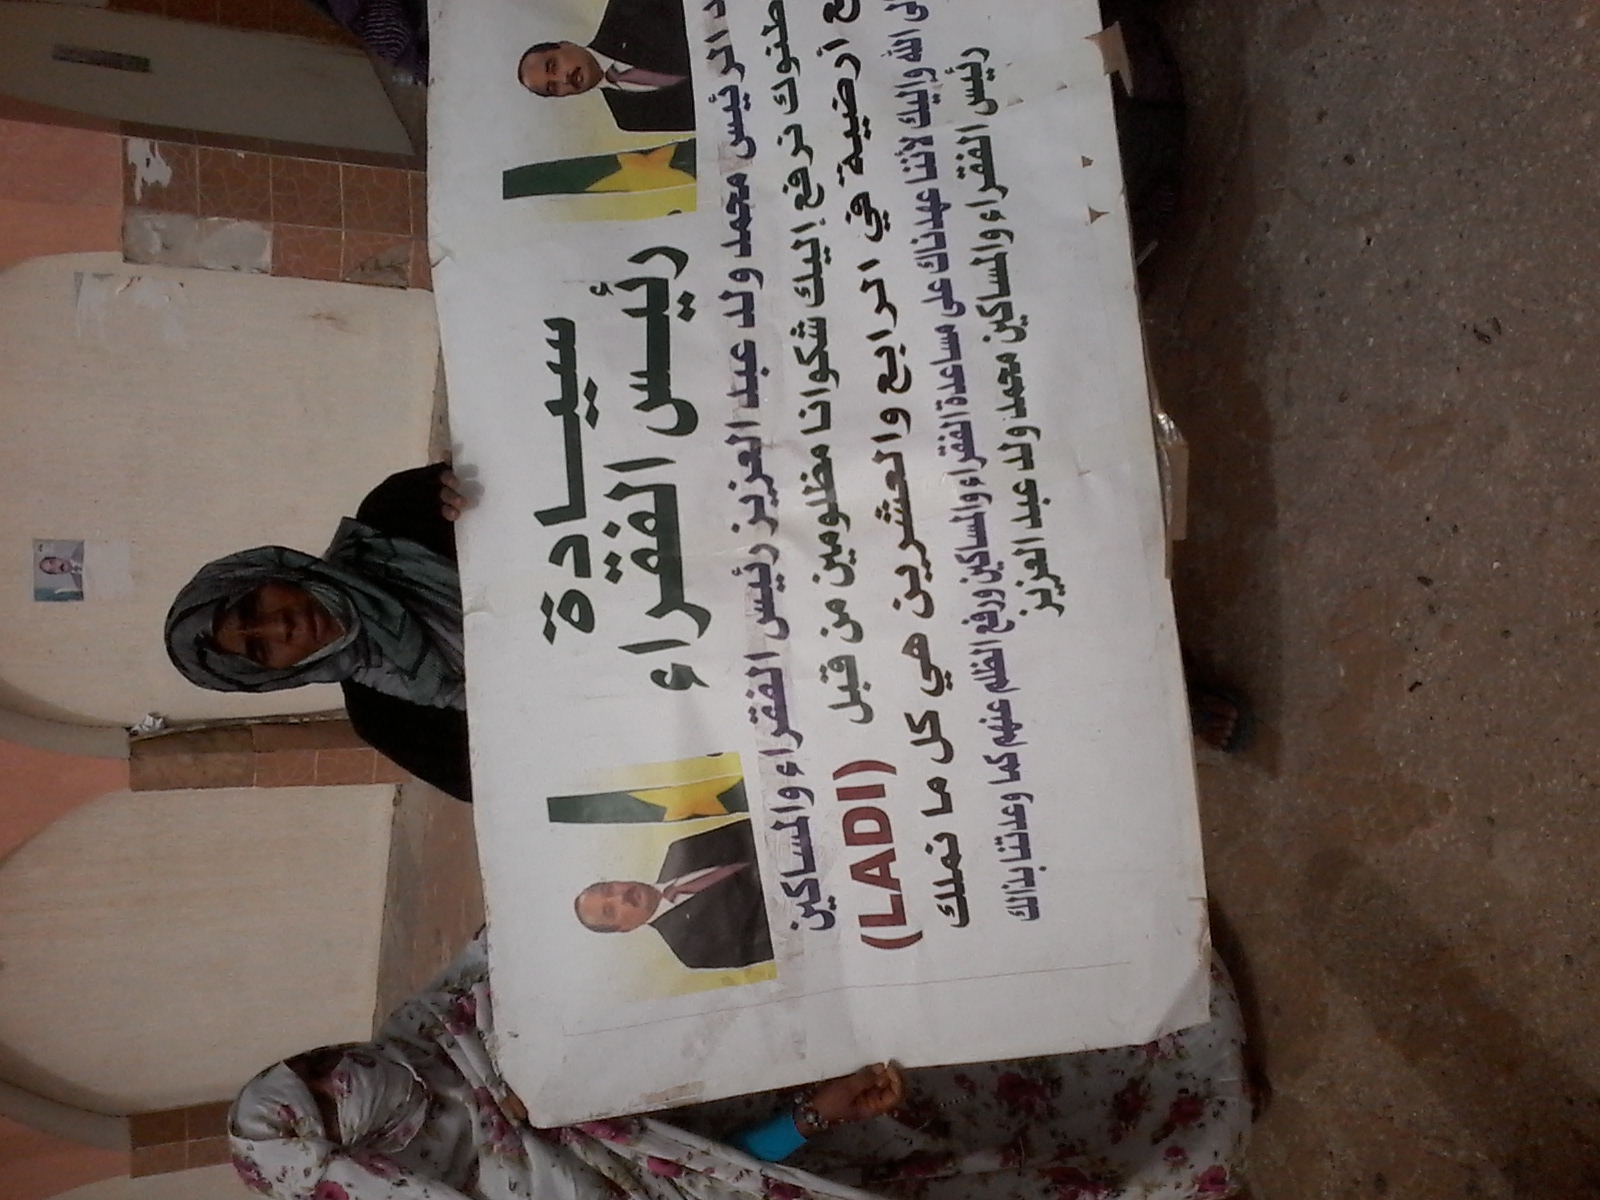 سيـــادة
رئيس الفقراء
الرئيس محمد ولد عبد العزيز رئيس الفقراء والمساكين
نرفع إليك شكوانا مظلومين من قبل (LADI)
أرضية في الرابع والعشرين هي كل ما نملك
الله وإليك لأننا عهدناك على مساعدة الفقراء والمساكين ورفع الظلم عنهم كما وعدتنا بذالك
رئيس الفقراء والمساكين محمد ولد عبد العزيز